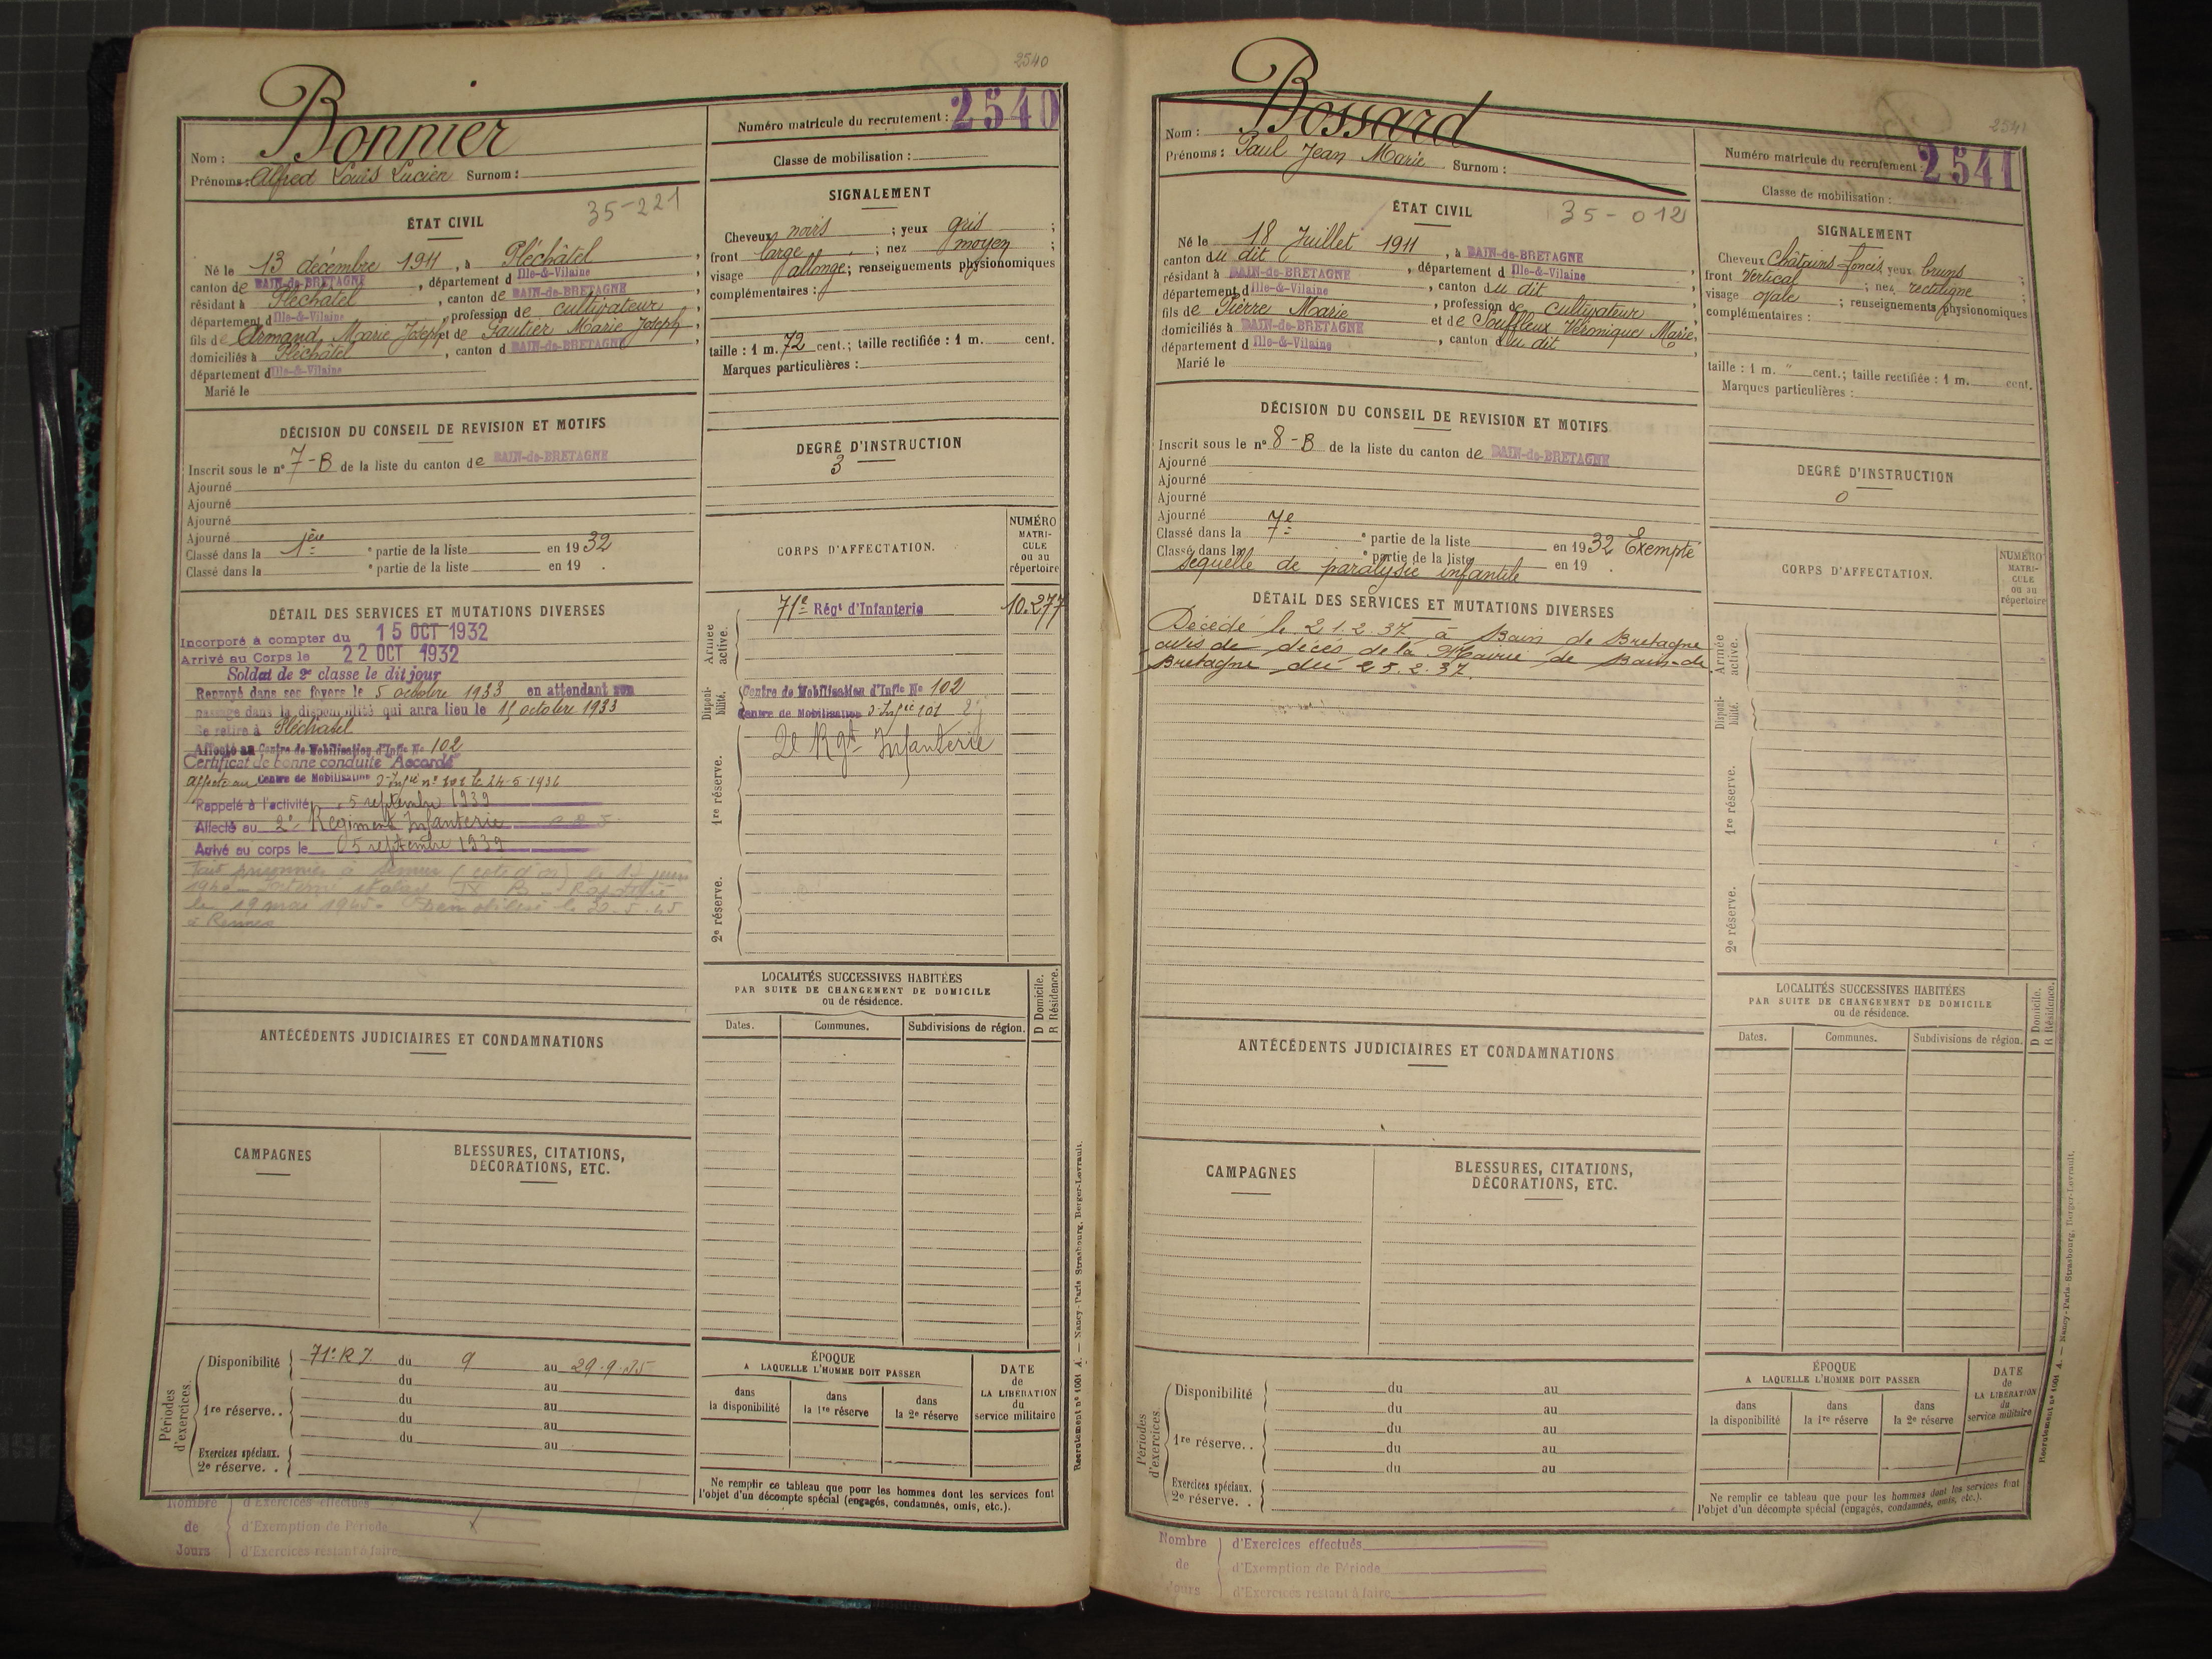 2540
Bonnier
Nom :
Prénoms : Alfred Louis Lucien Surnom :
Numéro matricule du recrutement : 2540
Classe de mobilisation :
ÉTAT CIVIL
35-221
Né le 13 décembre 1911, à Pléchâtel,
canton de BAIN-de-BRETAGNE, département d Ille-&-Vilaine,
résidant à Pléchâtel, canton de BAIN-de-BRETAGNE,
département d Ille-&-Vilaine, profession de cultivateur,
fils de Armand, Marie Joseph et de Gautier Marie Joseph,
domiciliés à Pléchâtel, canton d BAIN-de-BRETAGNE,
département d Ille-&-Vilaine
Marié le
SIGNALEMENT
Cheveux noirs ; yeux gris ;
front large ; nez moyen ;
visage allongé ; renseignements physionomiques
complémentaires :
taille : 1 m. 72 cent.; taille rectifiée : 1 m. cent.
Marques particulières :
DÉCISION DU CONSEIL DE REVISION ET MOTIFS
Inscrit sous le n° 7-B de la liste du canton de BAIN-de-BRETAGNE
Ajourné
Ajourné
Ajourné
Ajourné
Classé dans la 1ère e partie de la liste en 1932
Classé dans la e partie de la liste en 19 .
DEGRÉ D'INSTRUCTION
3
DÉTAIL DES SERVICES ET MUTATIONS DIVERSES
Incorporé à compter du 15 OCT 1932
Arrivé au Corps le 22 OCT 1932
Soldat de 2e classe le dit jour
Renvoyé dans ses foyers le 5 octobre 1933 en attendant son
passage dans la disponibilité qui aura lieu le 15 octobre 1933
Se retire à Pléchatel
Affecté au Centre de Mobilisation d'Infie No 102
Certificat de bonne conduite "Accordé"
affecté au Centre de Mobilisation d'Infie n° 101 le 24-5-1936
Rappelé à l'activité 5 septembre 1939
Affecté au 2e Régiment Infanterie
Arrivé au corps le 05 septembre 1939
Fait prisonnier à Semur (cote d'or) le 17 juin
1940 - Interné stalag IX B - Rapatrié
le 19 mai 1945 - Démobilisé le 20.5.45
à Rennes
CORPS D'AFFECTATION.
NUMÉRO
MATRI-
CULE
ou au
répertoire
Armée
active.
71e Régt d'Infanterie 10.277
Disponi-
bilité.
Centre de Mobilisation d'Infie No 102
Centre de Mobilisation d'Infie 101
1re réserve.
2e Rgt Infanterie
2e réserve.
LOCALITÉS SUCCESSIVES HABITÉES
PAR SUITE DE CHANGEMENT DE DOMICILE
ou de résidence.
D Domicile.
R Résidence.
Dates.
Communes.
Subdivisions de région.
ANTÉCÉDENTS JUDICIAIRES ET CONDAMNATIONS
CAMPAGNES
BLESSURES, CITATIONS,
DÉCORATIONS, ETC.
Périodes
d'exercices.
Disponibilité 71e R.I. du 9 au 29.9.35
du au
1re réserve.. du au
du au
du au
Exercices spéciaux.
2e réserve. .
ÉPOQUE
A LAQUELLE L'HOMME DOIT PASSER
dans
la disponibilité
dans
la 1re réserve
dans
la 2e réserve
DATE
de
LA LIBÉRATION
du
service militaire
Ne remplir ce tableau que pour les hommes dont les services font
l'objet d'un décompte spécial (engagés, condamnés, omis, etc.).
Nombre
de
Jours
d'Exercices effectués
d'Exemption de Période
d'Exercices restant à faire
Recrutement n° 1601 A. — Nancy-Paris-Strasbourg, Berger-Levrault.
2541
Bossard
Nom :
Prénoms : Paul Jean Marie Surnom :
Numéro matricule du recrutement : 2541
Classe de mobilisation :
ÉTAT CIVIL
35-012
Né le 18 Juillet 1911, à BAIN-de-BRETAGNE
canton du dit, département d Ille-&-Vilaine,
résidant à BAIN-de-BRETAGNE, canton du dit,
département d Ille-&-Vilaine, profession de cultivateur,
fils de Pierre Marie et de Souffleux Véronique Marie,
domiciliés à BAIN-de-BRETAGNE, canton du dit,
département d Ille-&-Vilaine
Marié le
SIGNALEMENT
Cheveux Châtains foncés yeux bruns ;
front Vertical ; nez rectiligne ;
visage ovale ; renseignements physionomiques
complémentaires :
taille : 1 m. " cent.; taille rectifiée : 1 m. cent.
Marques particulières :
DÉCISION DU CONSEIL DE REVISION ET MOTIFS
Inscrit sous le n° 8-B de la liste du canton de BAIN-de-BRETAGNE
Ajourné
Ajourné
Ajourné
Ajourné
Classé dans la 7e e partie de la liste en 1932 Exempté
Classé dans la e partie de la liste en 19 .
séquelle de paralysie infantile
DEGRÉ D'INSTRUCTION
0
DÉTAIL DES SERVICES ET MUTATIONS DIVERSES
Décédé le 21.2.37 à Bain de Bretagne
avis de décès de la Mairie de Bain-de
Bretagne du 25.2.37.
CORPS D'AFFECTATION.
NUMÉRO
MATRI-
CULE
ou au
répertoire
Armée
active.
Disponi-
bilité.
1re réserve.
2e réserve.
LOCALITÉS SUCCESSIVES HABITÉES
PAR SUITE DE CHANGEMENT DE DOMICILE
ou de résidence.
D Domicile.
R Résidence.
Dates.
Communes.
Subdivisions de région.
ANTÉCÉDENTS JUDICIAIRES ET CONDAMNATIONS
CAMPAGNES
BLESSURES, CITATIONS,
DÉCORATIONS, ETC.
Périodes
d'exercices.
Disponibilité du au
du au
1re réserve.. du au
du au
du au
Exercices spéciaux.
2e réserve. .
ÉPOQUE
A LAQUELLE L'HOMME DOIT PASSER
dans
la disponibilité
dans
la 1re réserve
dans
la 2e réserve
DATE
de
LA LIBÉRATION
du
service militaire
Ne remplir ce tableau que pour les hommes dont les services font
l'objet d'un décompte spécial (engagés, condamnés, omis, etc.).
Nombre
de
Jours
d'Exercices effectués
d'Exemption de Période
d'Exercices restant à faire
Recrutement n° 1601 A. — Nancy-Paris-Strasbourg, Berger-Levrault.